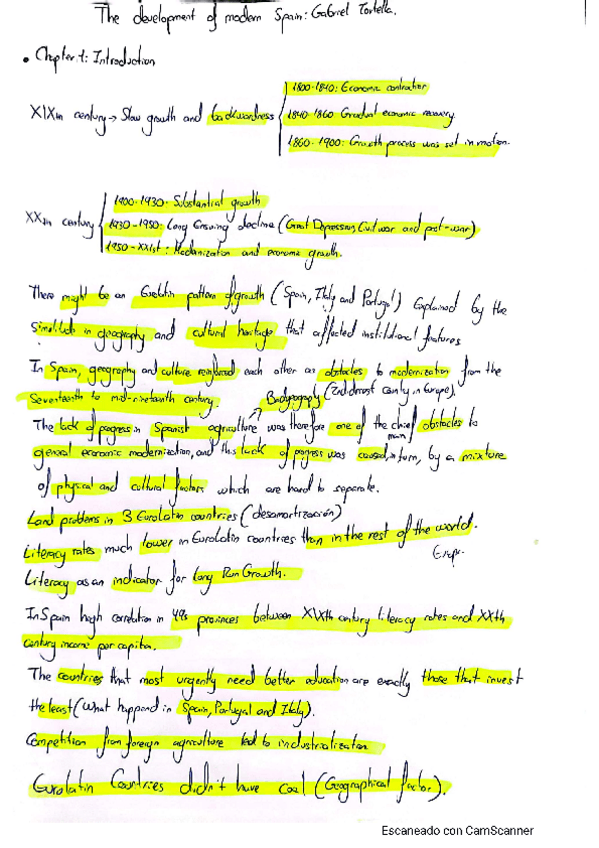 The development of modern Spain: Gabriel Tortella.
• Chapter 1: Introduction
1800-1840: Economic contraction
XIXth century → Slow growth and backwardness
1840-1860 Gradual economic recovery
1860-1900: Growth process was set in motion.
1900-1930: Substantial growth
XXth century
1930-1950: Long Ensuing decline (Great Depression, Civil war and post-war)
1950-XXIst: Modernization and economic growth.
There might be an Eurolatin pattern of growth (Spain, Italy and Portugal) Explained by the
in geography and cultural heritage that affected institutional features
In Spain, geography and culture reinforced each other as obstacles to modernization from the
Seventeenth to mid-nineteenth century.
(2nd most county in Europe)
The lack of progress in Spanish agriculture was therefore one of the chief obstacles to
main
general economic modernization, and this lack of progress was caused, in turn, by a mixture
of physical and cultural factors which are hard to separate.
Land problems in 3 Eurolatin countries (desamortización)
Literacy rates much lower in Eurolatin countries than in the rest of the world.
Europe.
Literacy as an indicator for Long Run Growth.
In Spain high correlation in 49s provinces between XIXth century literacy rates and XXth
century income per capita.
The countries that most urgently need better education are exactly those that invest
the least (What happend in Spain, Portugal and Italy).
Competition from foreign agriculture led to industrialization
Eurolatin Countries didn't have Coal (Geographical factor).
Escaneado con CamScanner